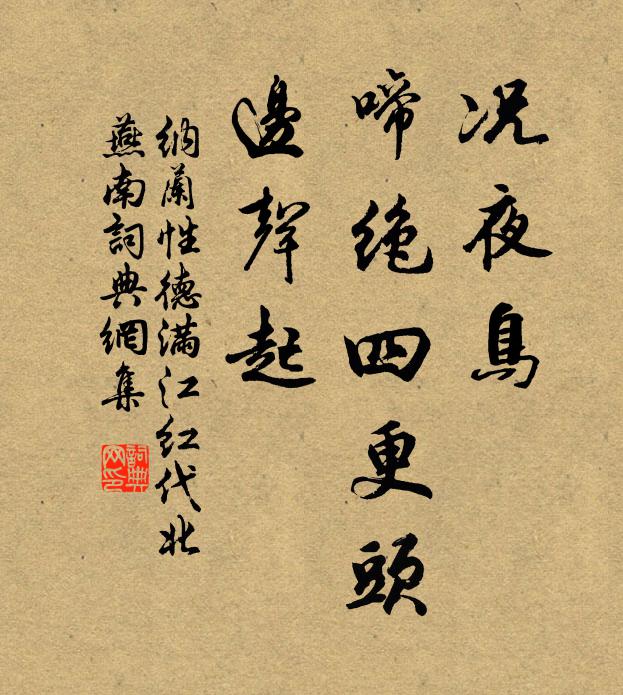 况夜烏
啼絶四更頭
邊聲起
納蘭性德滿江紅代北
燕南詞典網集
詞典
网印